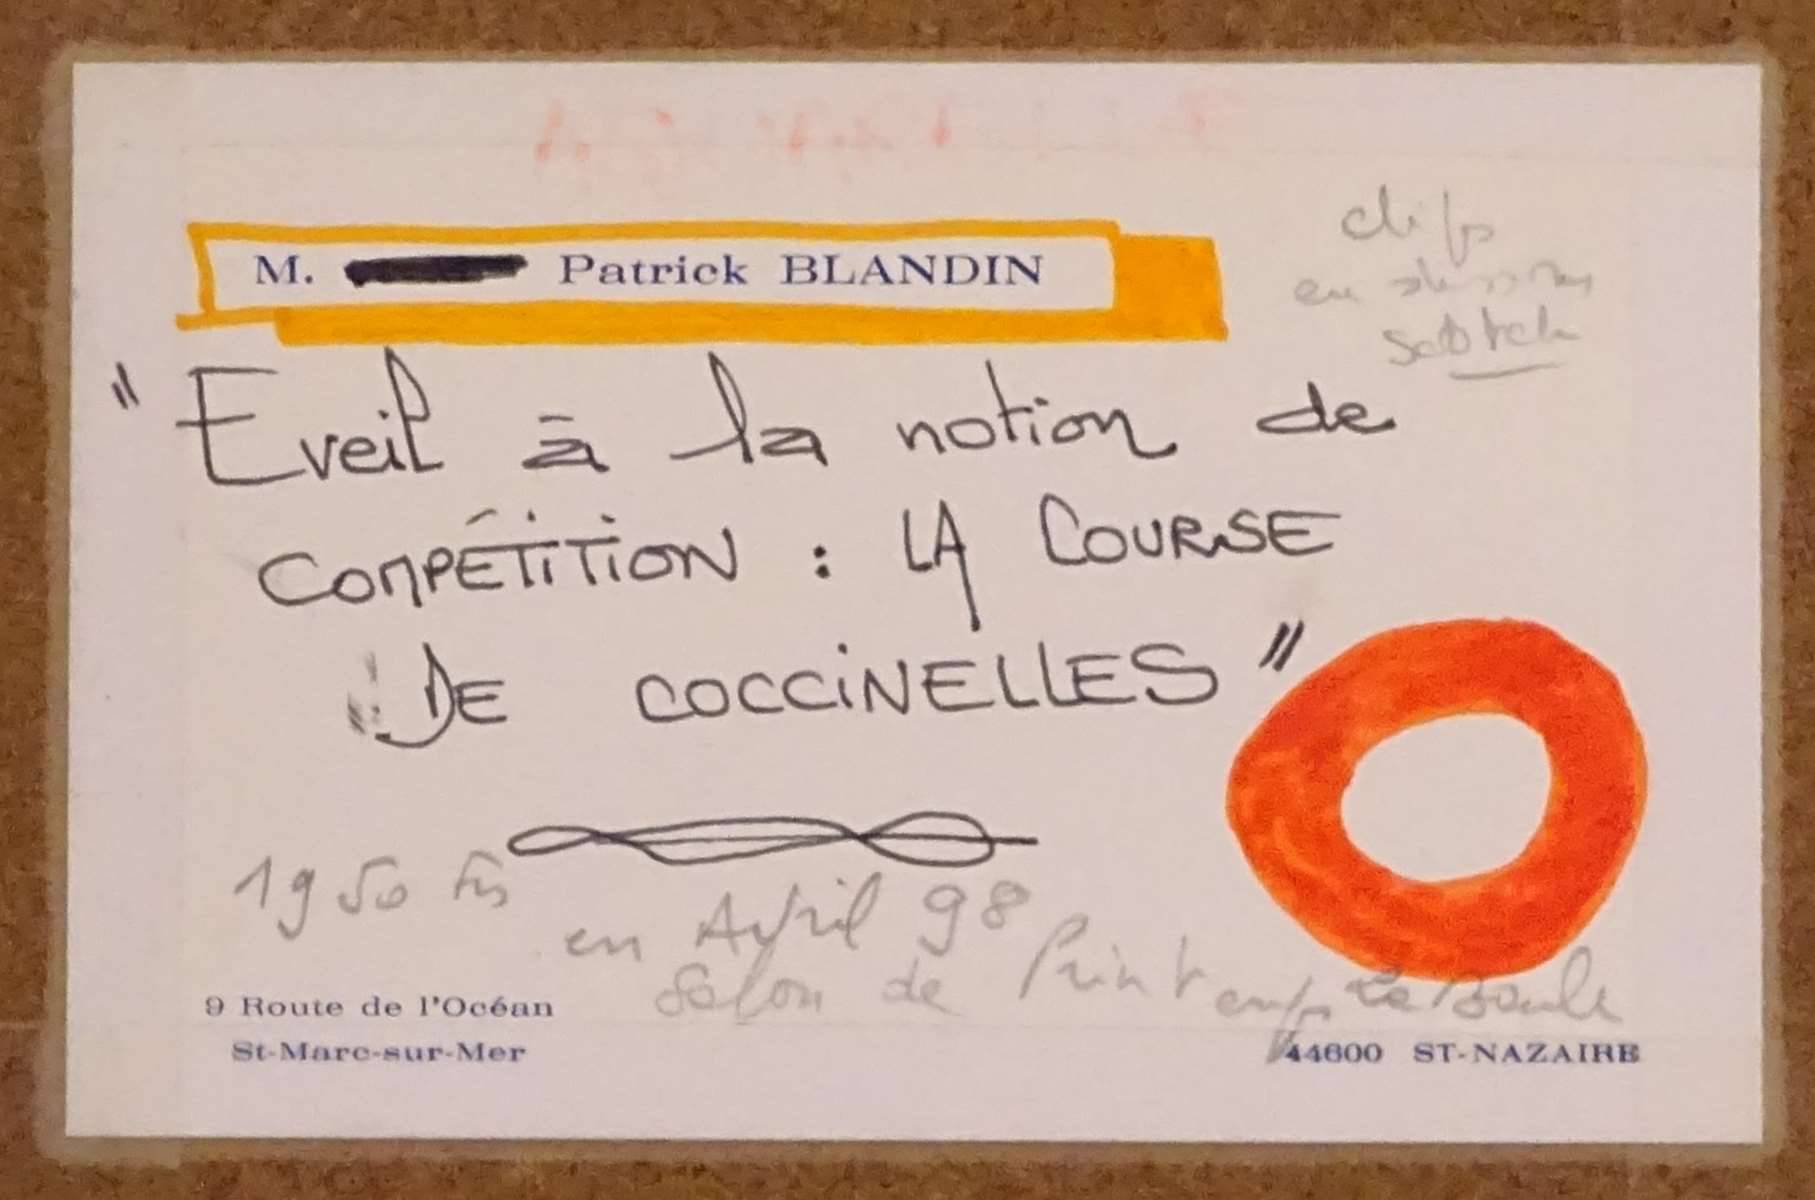 M. Patrick BLANDIN
clip
en dessous
scotch
" Eveil à la notion de
COMPÉTITION : LA COURSE
DE COCCINELLES "
1950 Frs
en Avril 98
Salon de Printemps La Baule
9 Route de l'Océan
St-Marc-sur-Mer
44600 ST-NAZAIRE